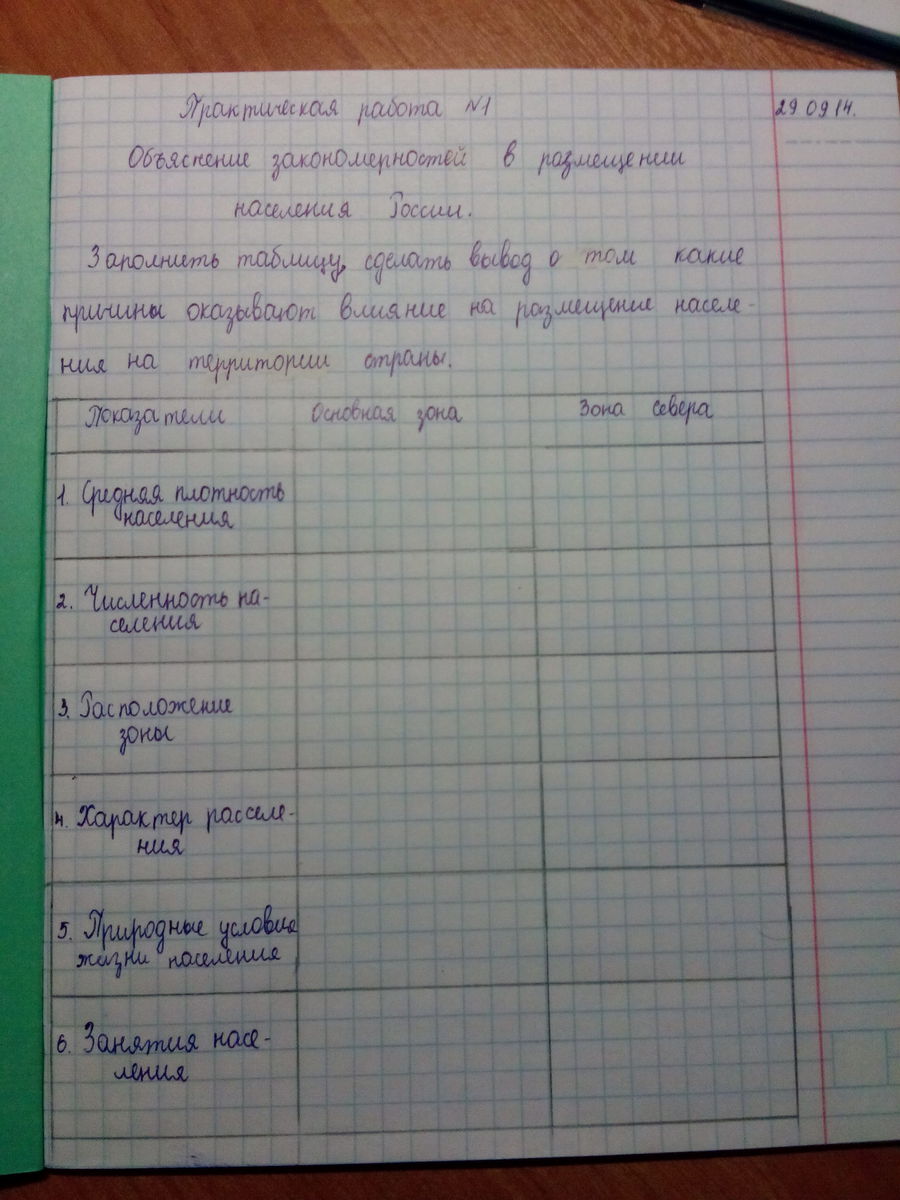 Практическая работа №1
29 09 14.
Объяснение закономерностей в размещении
населения России.
Заполнить таблицу, сделать вывод о том какие
причины оказывают влияние на размещение населе-
ния на территории страны.
Показатели Основная зона Зона севера
1. Средняя плотность
населения
2. Численность на-
селения
3. Расположение
зоны
4. Характер расселе-
ния
5. Природные условия
жизни населения
6. Занятия насе-
ления